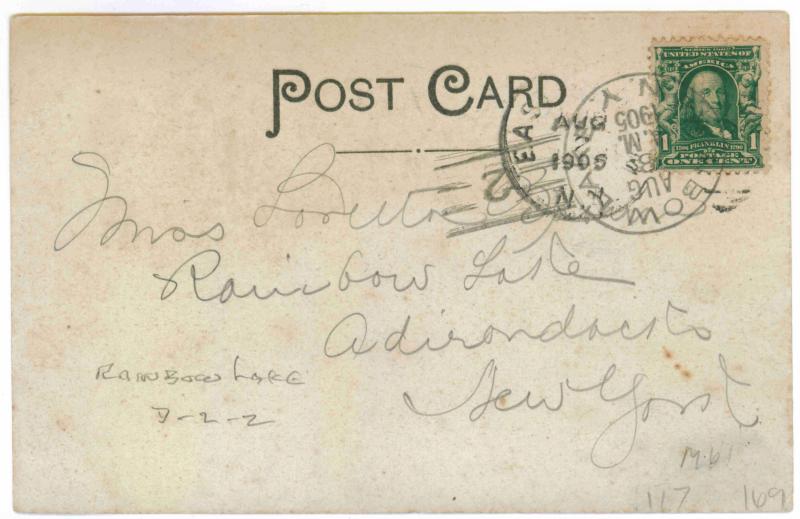 POST CARD
SERIES 1902
UNITED STATES OF
AMERICA
1 FRANKLIN 1
POSTAGE
ONE CENT
EAS
AUG
1905
N.Y.
2
AUG
M.
1905
N.Y.
Loretta
Rainbow Lake
Adirondacks
New York
RAINBOW LAKE
7-2-2
117 169